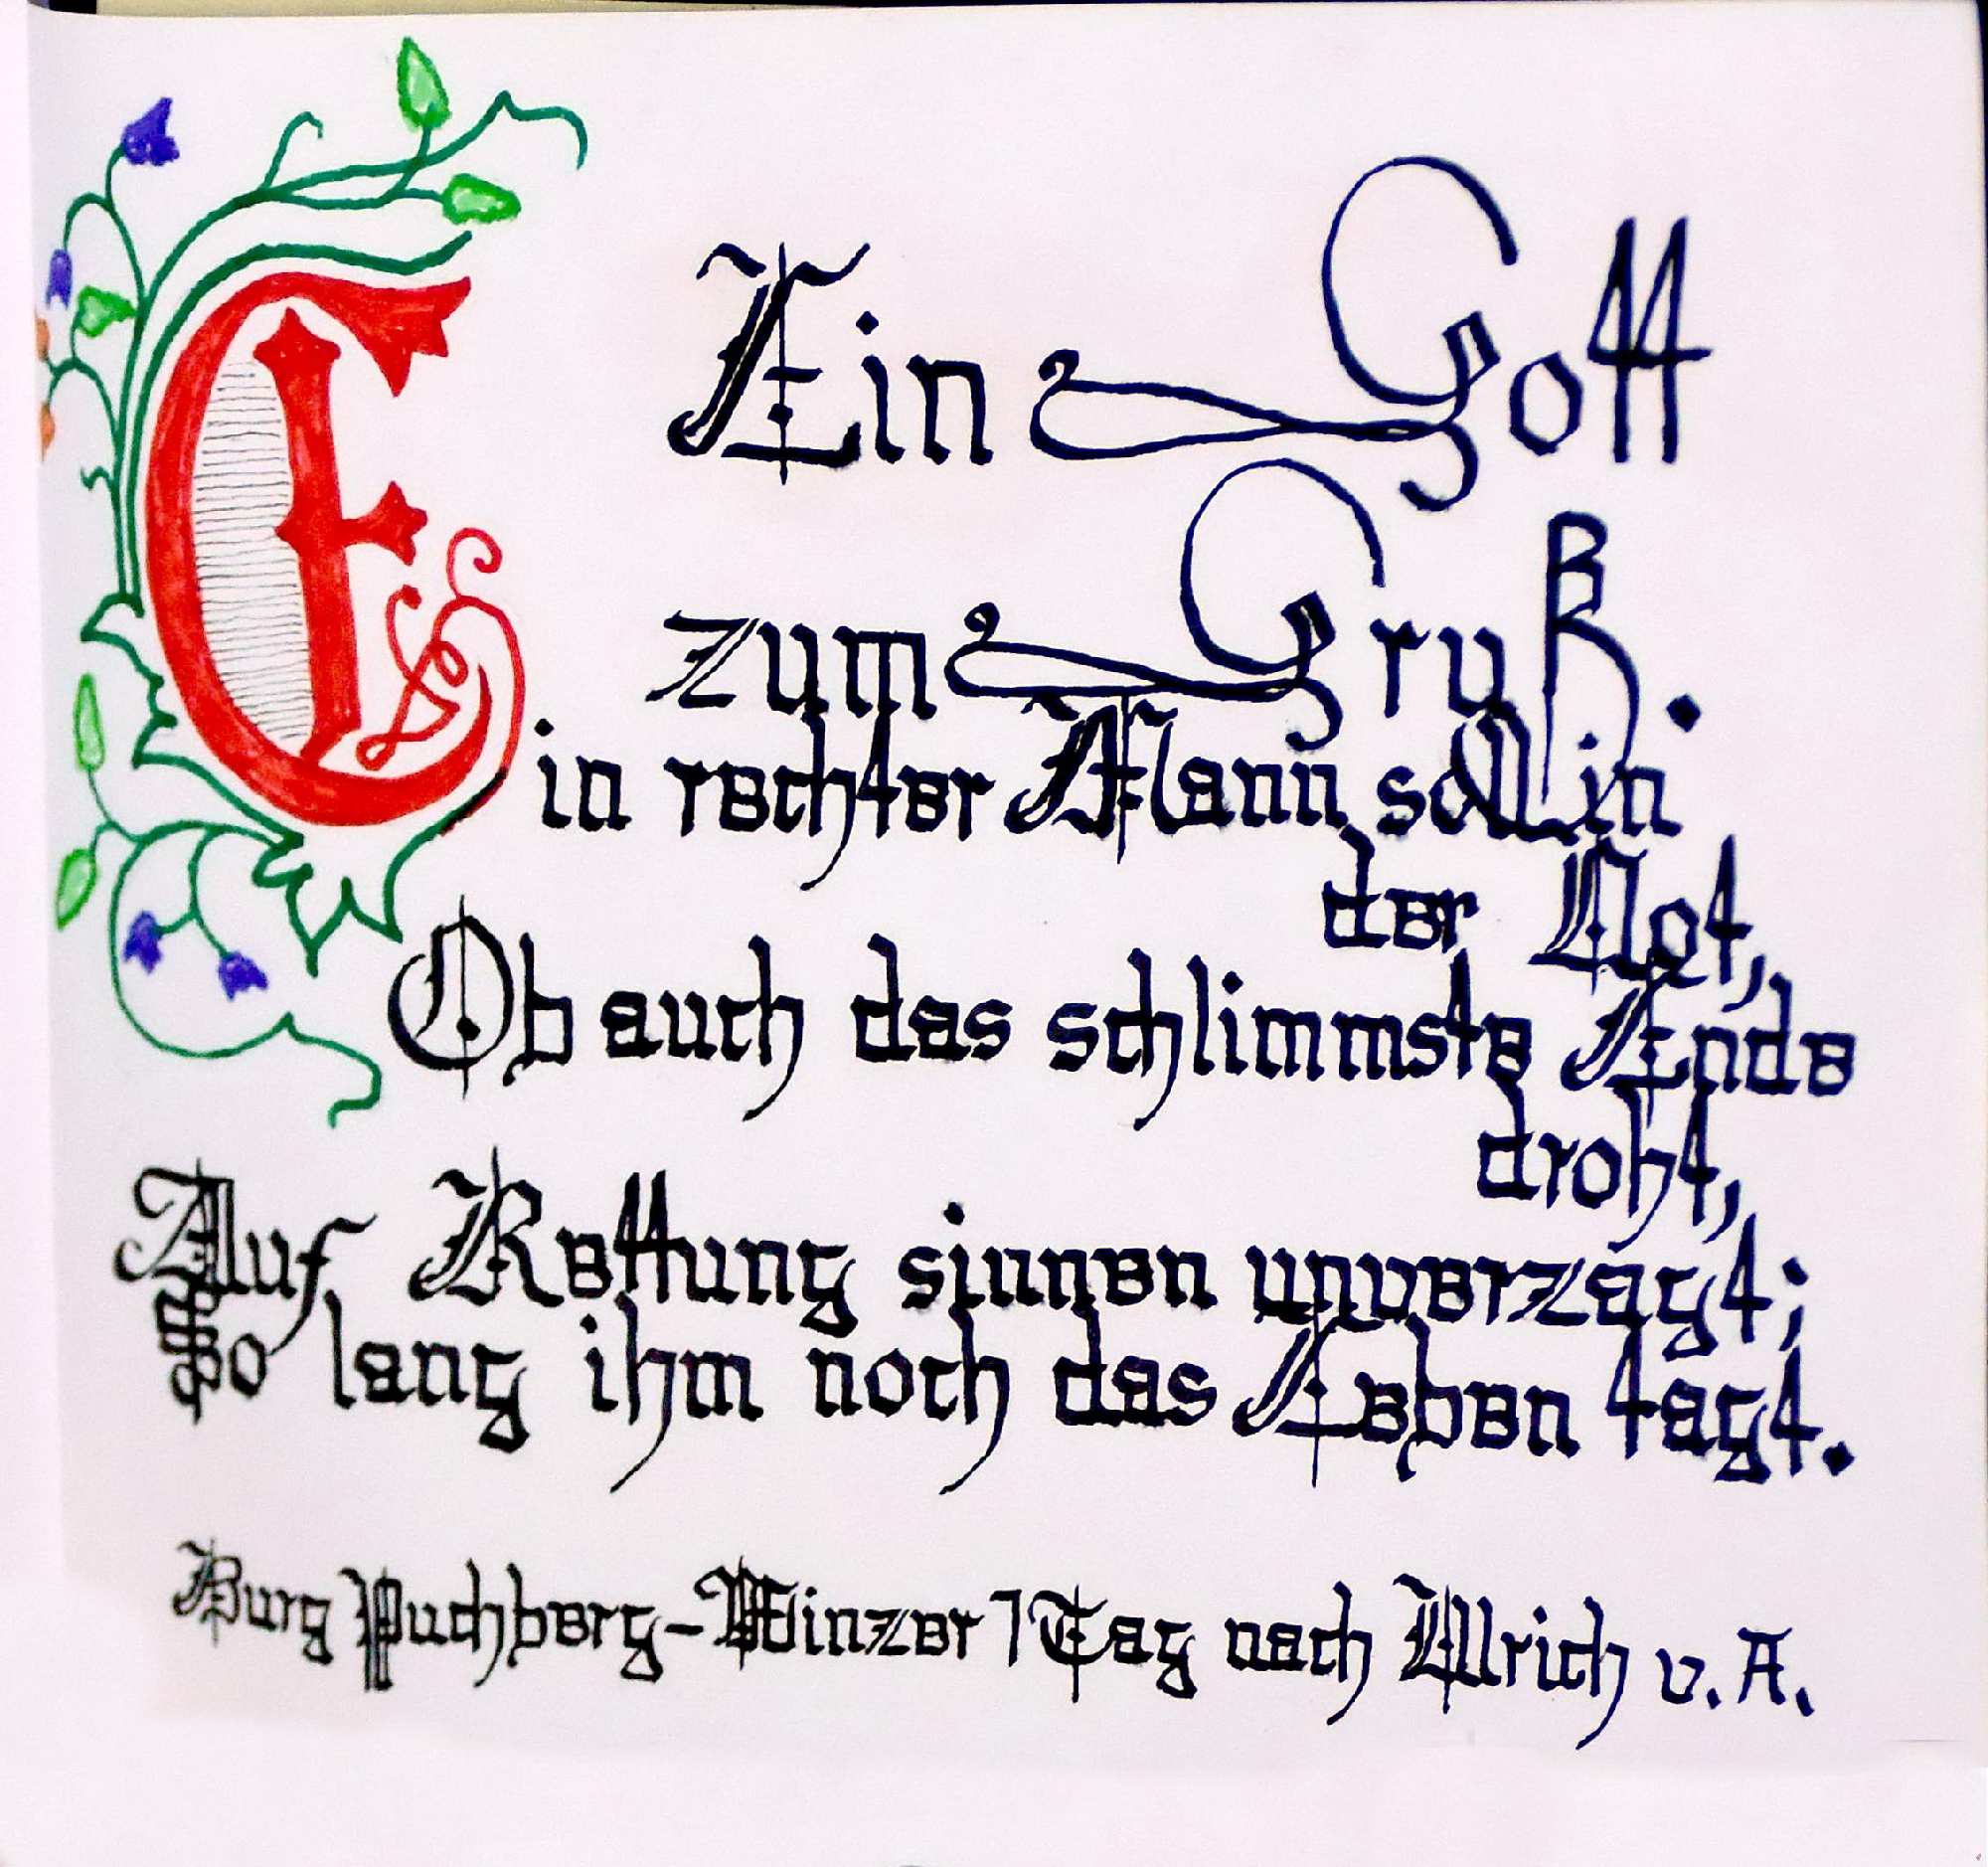 Ein Gott
zum Gruß.
Ein rechter Mann soll in
der Not,
Ob auch das schlimmste Ende
droht,
Auf Rettung sinnen unverzagt;
So lang ihm noch das Leben tagt.
Burg Puchberg-Winzer 1 Tag nach Ulrich v. A.